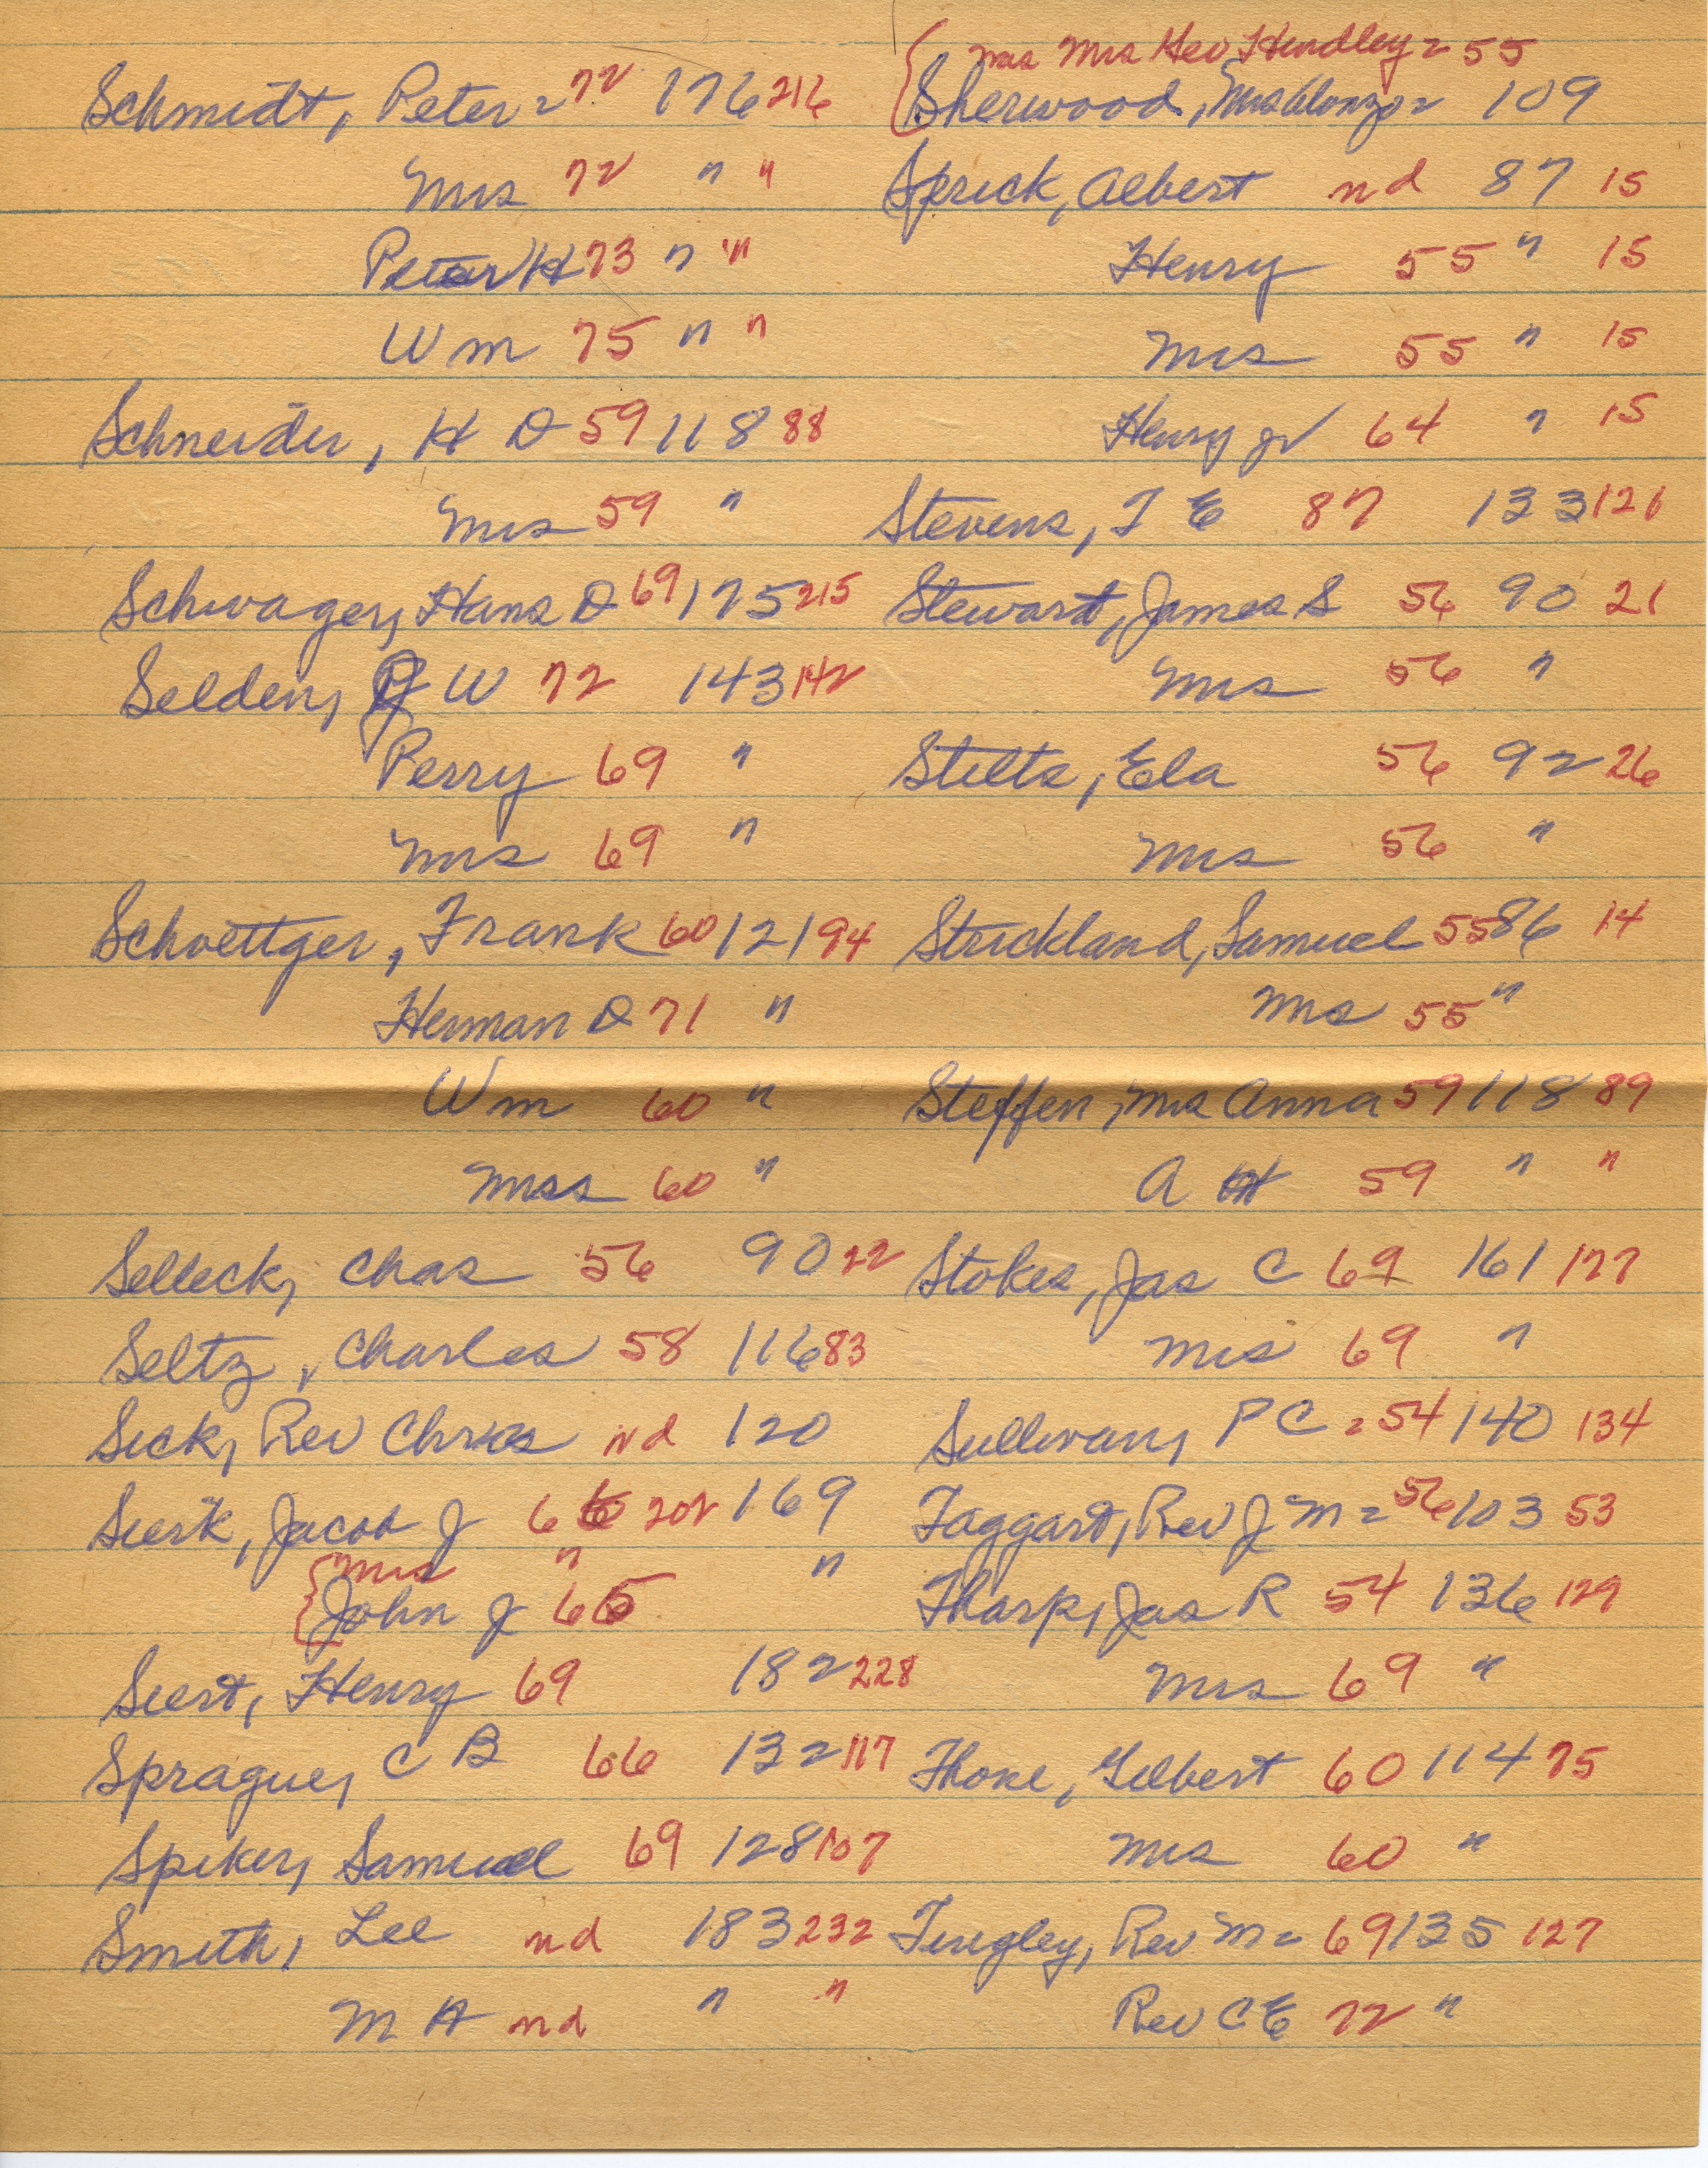 Schmidt, Peter = 72 176 216
Mrs 72 " "
Peter H 73 " "
Wm 75 " "
Schneider, H D 59 118 88
Mrs 59 "
Schwager, Hans D 69 175 215
Selden, P W 72 143 142
Perry 69 "
Mrs 69 "
Schoettger, Frank 60 121 94
Herman D 71 "
Wm 60 "
Miss 60 "
Selleck, Chas 56 90 22
Seltz, Charles 58 116 83
Sick, Rev Chras nd 120
Sierk, Jacob J 66 202 169
Mrs " "
John J 66
Siert, Henry 69 182 228
Sprague, C B 66 132 117
Spiker, Samuel 69 128 107
Smith, Lee nd 183 232
M A nd " "
Mrs Geo Hindley = 55
Sherwood, Mrs Alonzo = 109
Sprick, Albert nd 87 15
Henry 55 " 15
Mrs 55 " 15
Henry Jr 64 " 15
Stevens, T E 87 133 121
Stewart, James S 56 90 21
Mrs 56 "
Stilts, Ela 56 92 26
Mrs 56 "
Strickland, Samuel 55 86 14
Mrs 55 "
Steffen, Mrs Anna 59 118 89
A H 59 " "
Stokes, Jas C 69 161 127
Mrs 69 "
Sullivan, P C = 54 140 134
Taggart, Rev J M = 56 103 53
Tharp, Jas R 54 136 129
Mrs 69 "
Thone, Gilbert 60 114 75
Mrs 60 "
Tingley, Rev M = 69 135 127
Rev C E 72 "